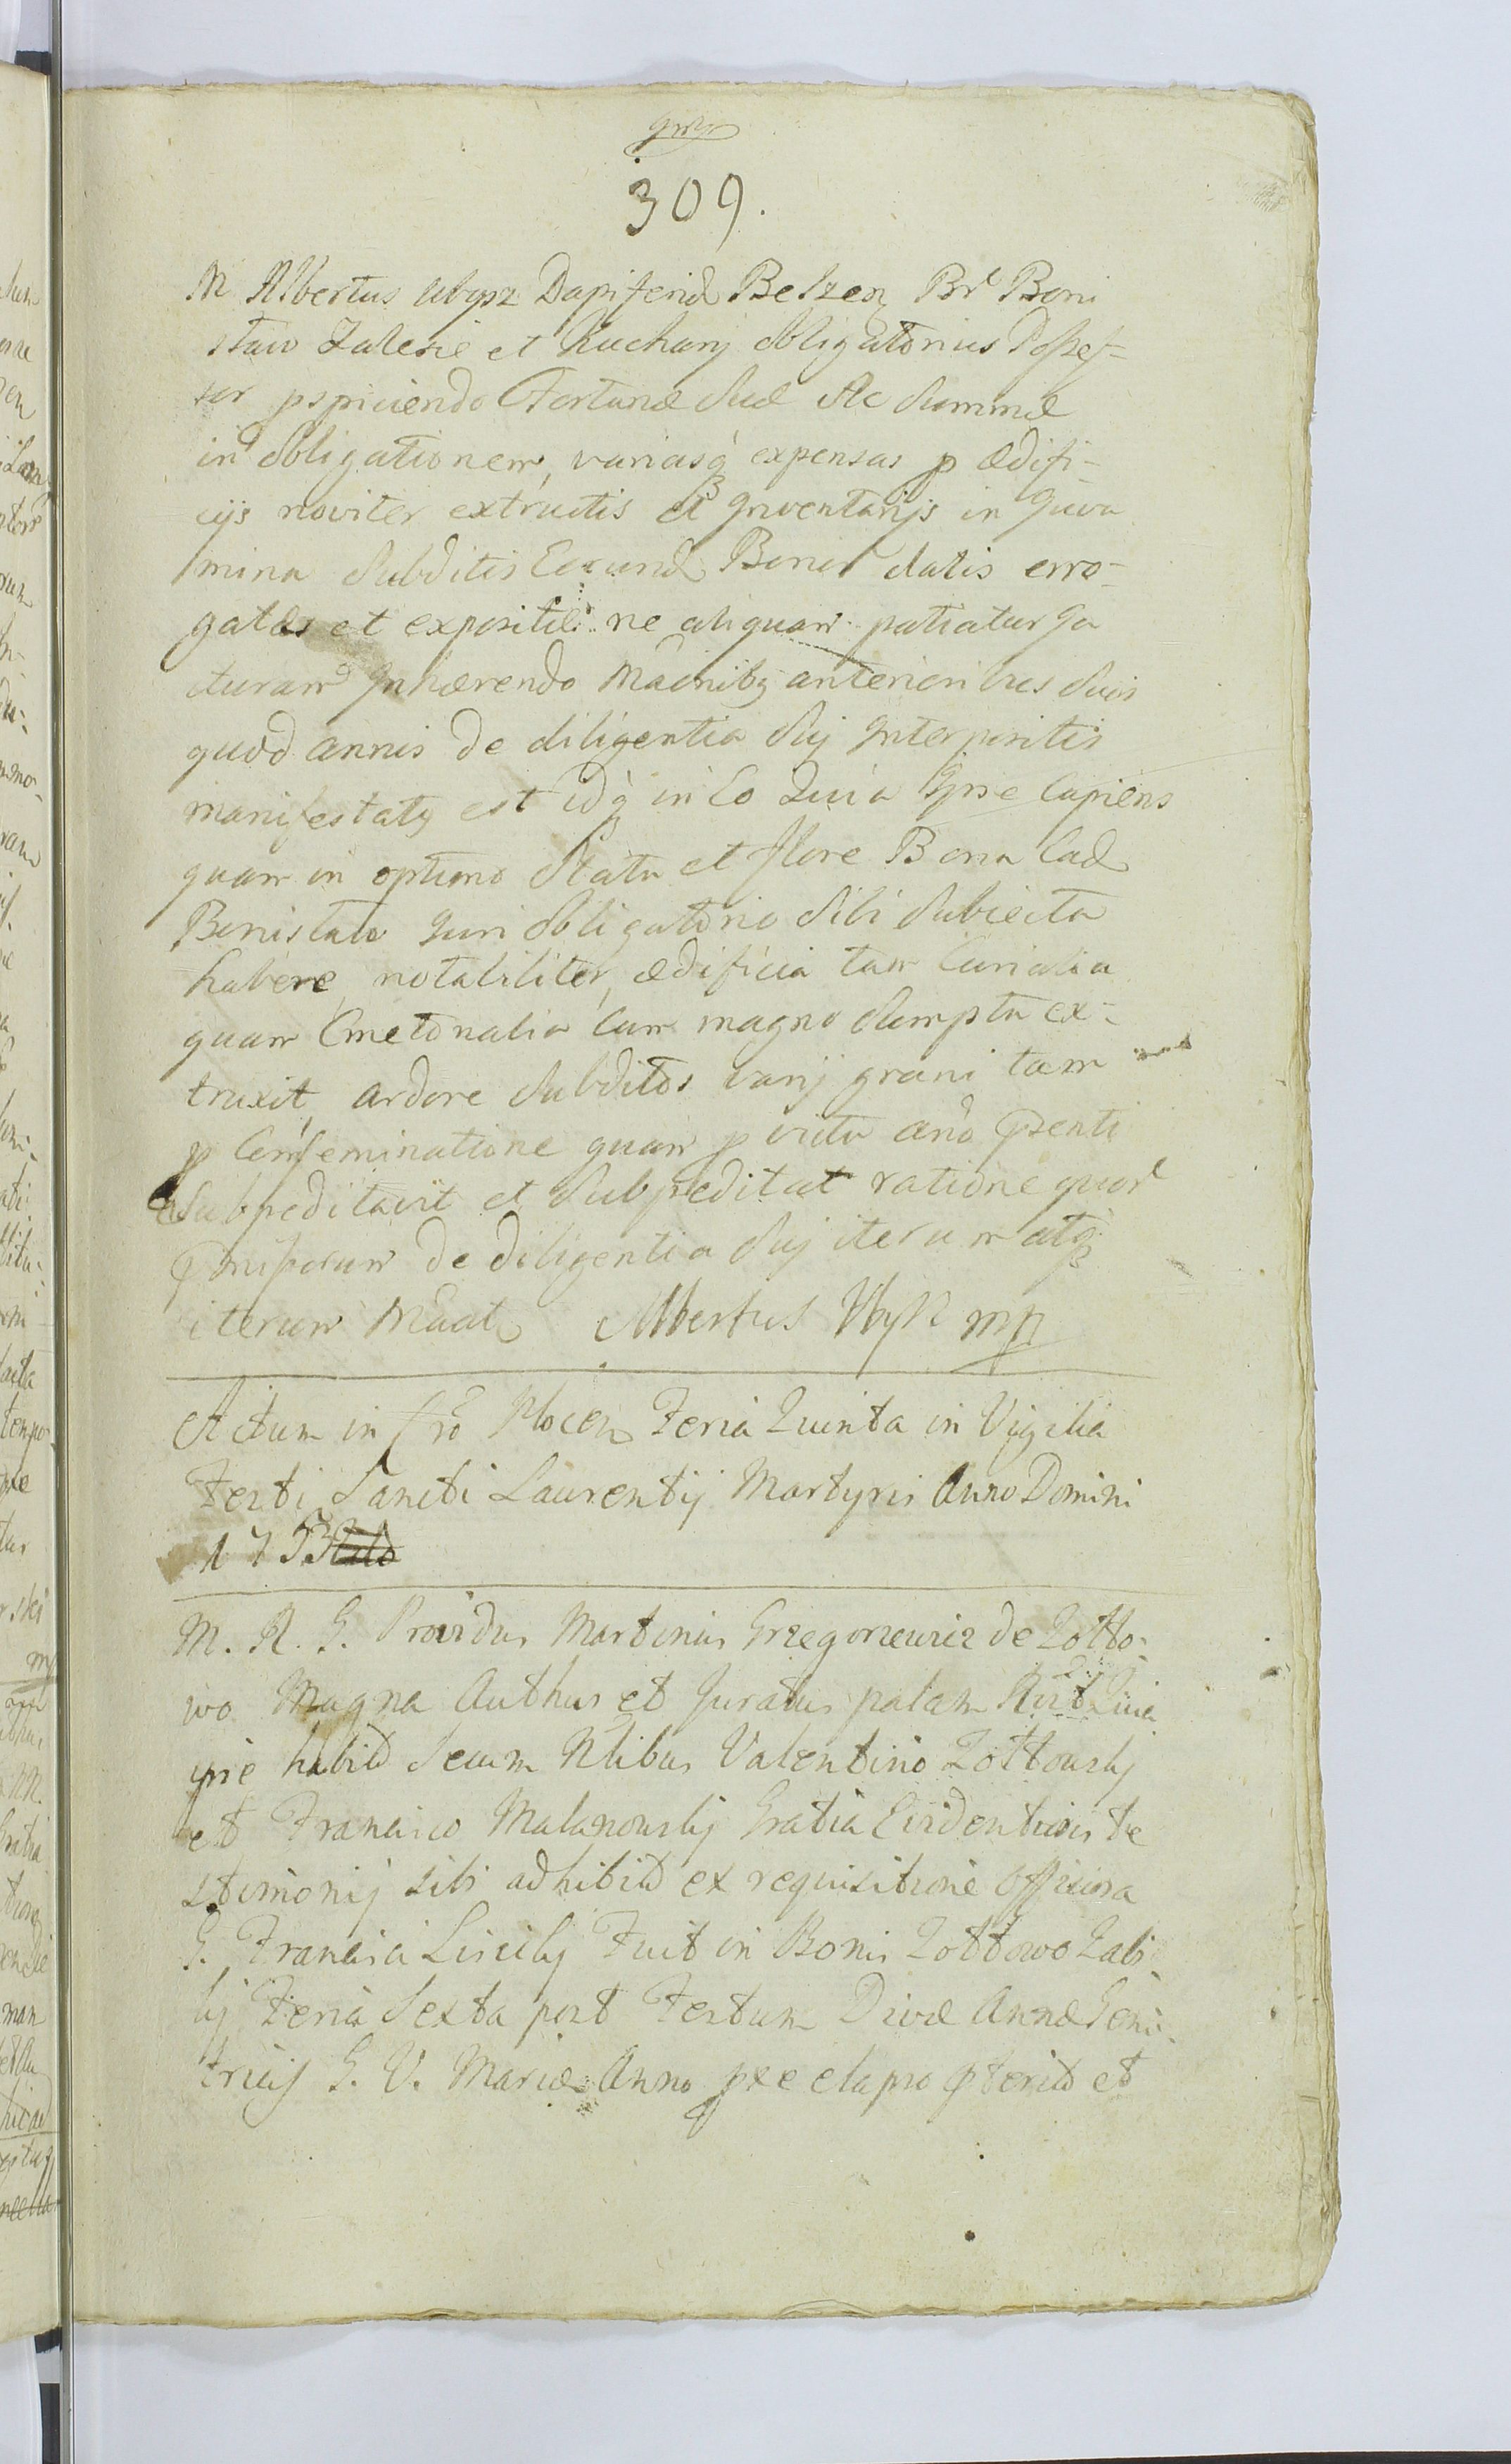 309.
M Albertus Ubysz Dapiferid Belzen Br Boni
slaw Zalesie et Kuchary obligatorius Possess=
sor pspiciendo Fortunæ Suæ Ac Summæ
in obligationem, variasq expensas p ædifi-
cijs noviter extructis et Inventarijs in Juva
mina Subditis Eorund Bonor datis erro-
gatas et expositas ne aliquam patiatur Ja
cturam Inhærendo Maonibq anterioribus Suis
quod annis de diligentia Sui Interpositis
manifestatq est idq in Eo Quia Ipse Cupiens
quam in optimo Statu et flore Bona Ead
Bonislaw Juri obligatorio Sibi Subiecta
habere, notabiliter, ædificia tam Curialia
quam Cmetonalia Cum magno Sumptu ex-
truxit, ardore Subditos varij grani tam
p Conseminatione quam p victu ano pzenti
Subpeditavit et Subpeditat ratione quor
pmissorum de diligentia Sui iterum atq
iterum Maat Albertus Ubysz mp
Actum in Cro Plocen Feria Quinta in Vigilia
Festi Sancti Laurentij Martyris Anno Domini
1753
M. R. G. Providus Martinus Grzegorzewicz de Zotto-
wo Magna Authus et Juratus palam Rcit Quia
ipse habitis Secum Nlibus Valentino Zottowsky
et Francisco Malanowsky Gratia Evidentioris te
stimonij sibi adhibitis ex requisitione Officiosa
G. Francisci Lisicky Fuit in Bonis Zottowo Zabi
ky Feria Sexta post Festum Divæ Annæ Geni-
tricis G. V. Mariæ Anno pxe elapso pterito et